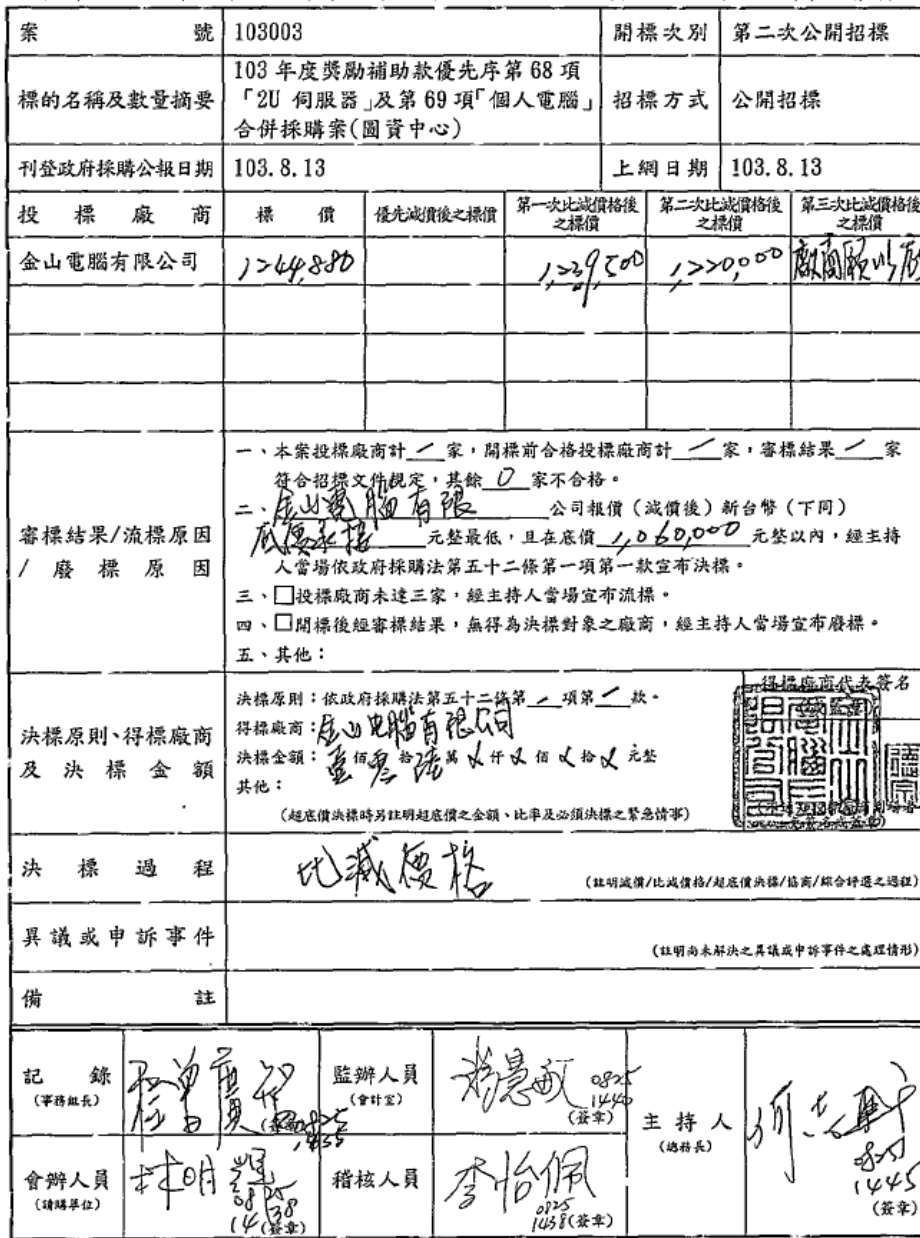 案號 103003 開標次別 第二次公開招標
標的名稱及數量摘要 103 年度獎勵補助款優先序第 68 項
「2U 伺服器」及第 69 項「個人電腦」
合併採購案(圖資中心)
招標方式 公開招標
刊登政府採購公報日期 103.8.13 上網日期 103.8.13
投標廠商 標價 優先減價後之標價 第一次比減價格後之標價 第二次比減價格後之標價 第三次比減價格後之標價
金山電腦有限公司 1,244,880 1,239,500 1,220,000 廠商願以底
審標結果/流標原因
/廢標原因
一、本案投標廠商計 一 家,開標前合格投標廠商計 一 家,審標結果 一 家
符合招標文件規定,其餘 0 家不合格。
二、金山電腦有限 公司報價(減價後)新台幣(下同)
底價承接 元整最低,且在底價 1,060,000 元整以內,經主持
人當場依政府採購法第五十二條第一項第一款宣布決標。
三、□投標廠商未達三家,經主持人當場宣布流標。
四、□開標後經審標結果,無得為決標對象之廠商,經主持人當場宣布廢標。
五、其他:
決標原則、得標廠商
及決標金額
決標原則:依政府採購法第五十二條第 一 項第 一 款。
得標廠商:金山电腦有限公司
決標金額:壹佰零拾陸萬 × 仟 × 佰 × 拾 × 元整
其他:
(超底價決標時另註明超底價之金額、比率及必須決標之緊急情事)
得標廠商代表簽名
決標過程 比減價格 (註明減價/比減價格/超底價決標/協商/綜合評選之過程)
異議或申訴事件 (註明尚未解決之異議或申訴事件之處理情形)
備註
記錄
(事務組長)
監辦人員
(會計室)
0825
1440
(簽章)
主持人
(總務長)
0825
1445
(簽章)
會辦人員
(請購單位)
林明
08/25
14/38
(簽章)
稽核人員
李怡佩
0825
1438(簽章)